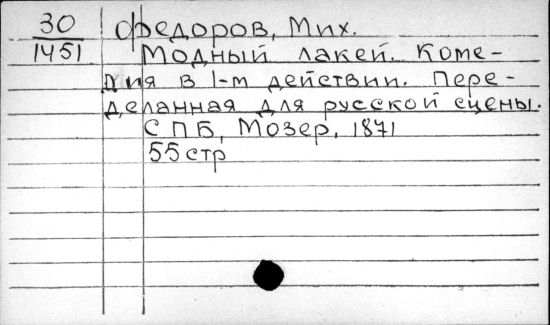 30
1451
Федоров, Мих.
Модный лакей. Коме-
дия в 1-м действии. Пере-
деланная для русской сцены.
СПБ, Мозер, 1871
55 стр